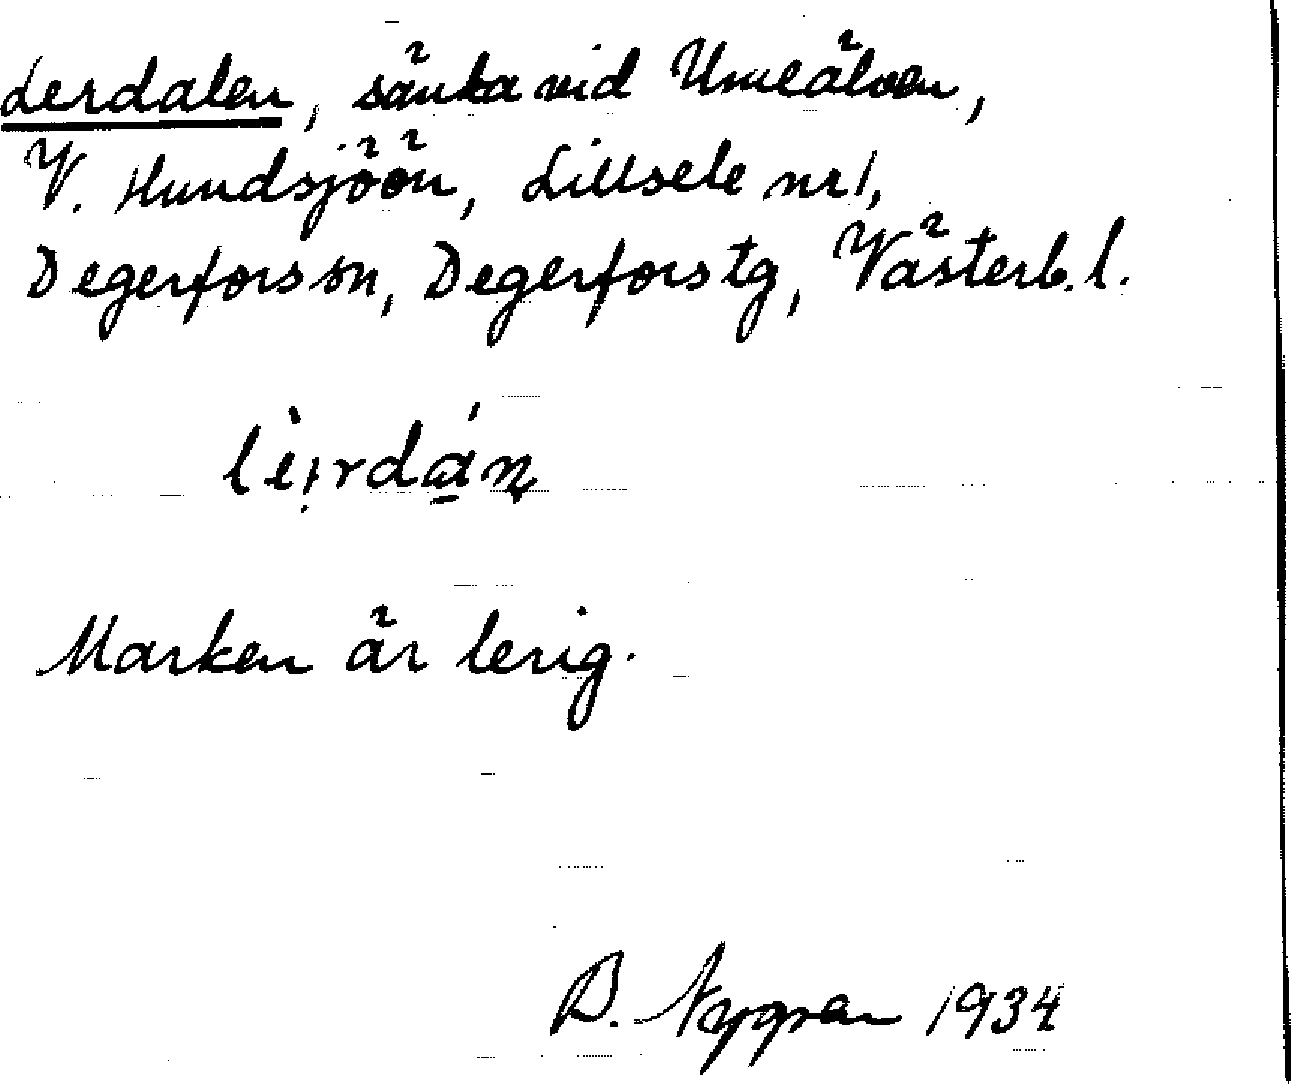 Lerdalen, sänka vid Umeälven,
V. Hundsjöön, Lillsele nr 1,
Degerfors sn, Degerfors tg, Västerb. l.
lèṛrdán
Marken är lerig.
B. Nygren 1934